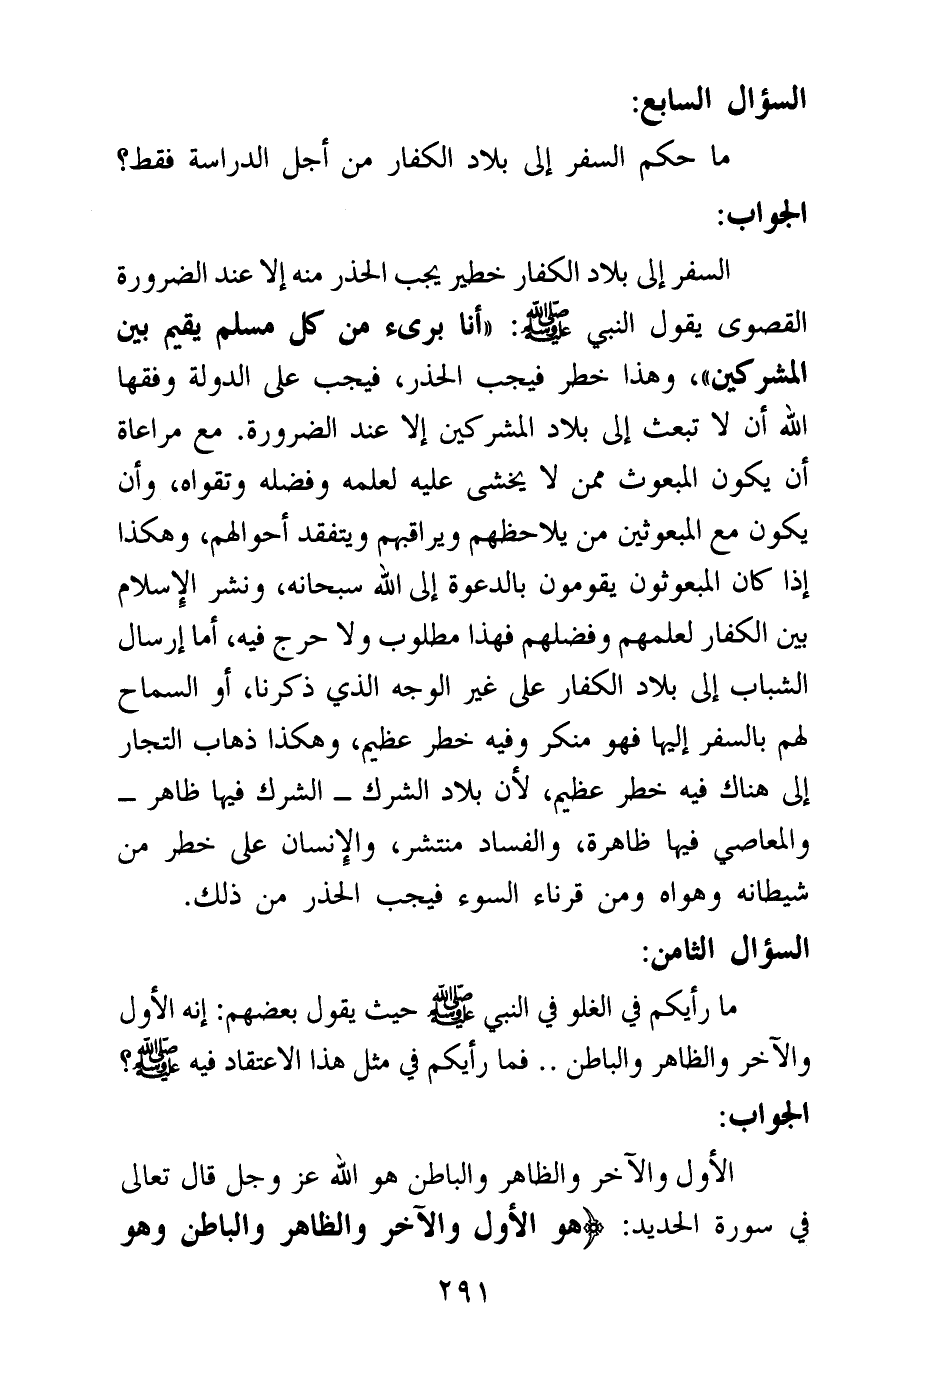 السؤال السابع:
ما حكم السفر إلى بلاد الكفار من أجل الدراسة فقط؟
الجواب:
السفر إلى بلاد الكفار خطير يجب الحذر منه إلا عند الضرورة
القصوى يقول النبي ﷺ: «أنا برىء من كل مسلم يقيم بين
المشركين»، وهذا خطر فيجب الحذر، فيجب على الدولة وفقها
الله أن لا تبعث إلى بلاد المشركين إلا عند الضرورة. مع مراعاة
أن يكون المبعوث ممن لا يخشى عليه لعلمه وفضله وتقواه، وأن
يكون مع المبعوثين من يلاحظهم ويراقبهم ويتفقد أحوالهم، وهكذا
إذا كان المبعوثون يقومون بالدعوة إلى الله سبحانه، ونشر الإسلام
بين الكفار لعلمهم وفضلهم فهذا مطلوب ولا حرج فيه، أما إرسال
الشباب إلى بلاد الكفار على غير الوجه الذي ذكرنا، أو السماح
لهم بالسفر إليها فهو منكر وفيه خطر عظيم، وهكذا ذهاب التجار
إلى هناك فيه خطر عظيم، لأن بلاد الشرك ــ الشرك فيها ظاهر ــ
والمعاصي فيها ظاهرة، والفساد منتشر، والإنسان على خطر من
شيطانه وهواه ومن قرناء السوء فيجب الحذر من ذلك.
السؤال الثامن:
ما رأيكم في الغلو في النبي ﷺ حيث يقول بعضهم: إنه الأول
والآخر والظاهر والباطن .. فما رأيكم في مثل هذا الاعتقاد فيه ﷺ؟
الجواب:
الأول والآخر والظاهر والباطن هو الله عز وجل قال تعالى
في سورة الحديد: ﴿هو الأول والآخر والظاهر والباطن وهو
٢٩١